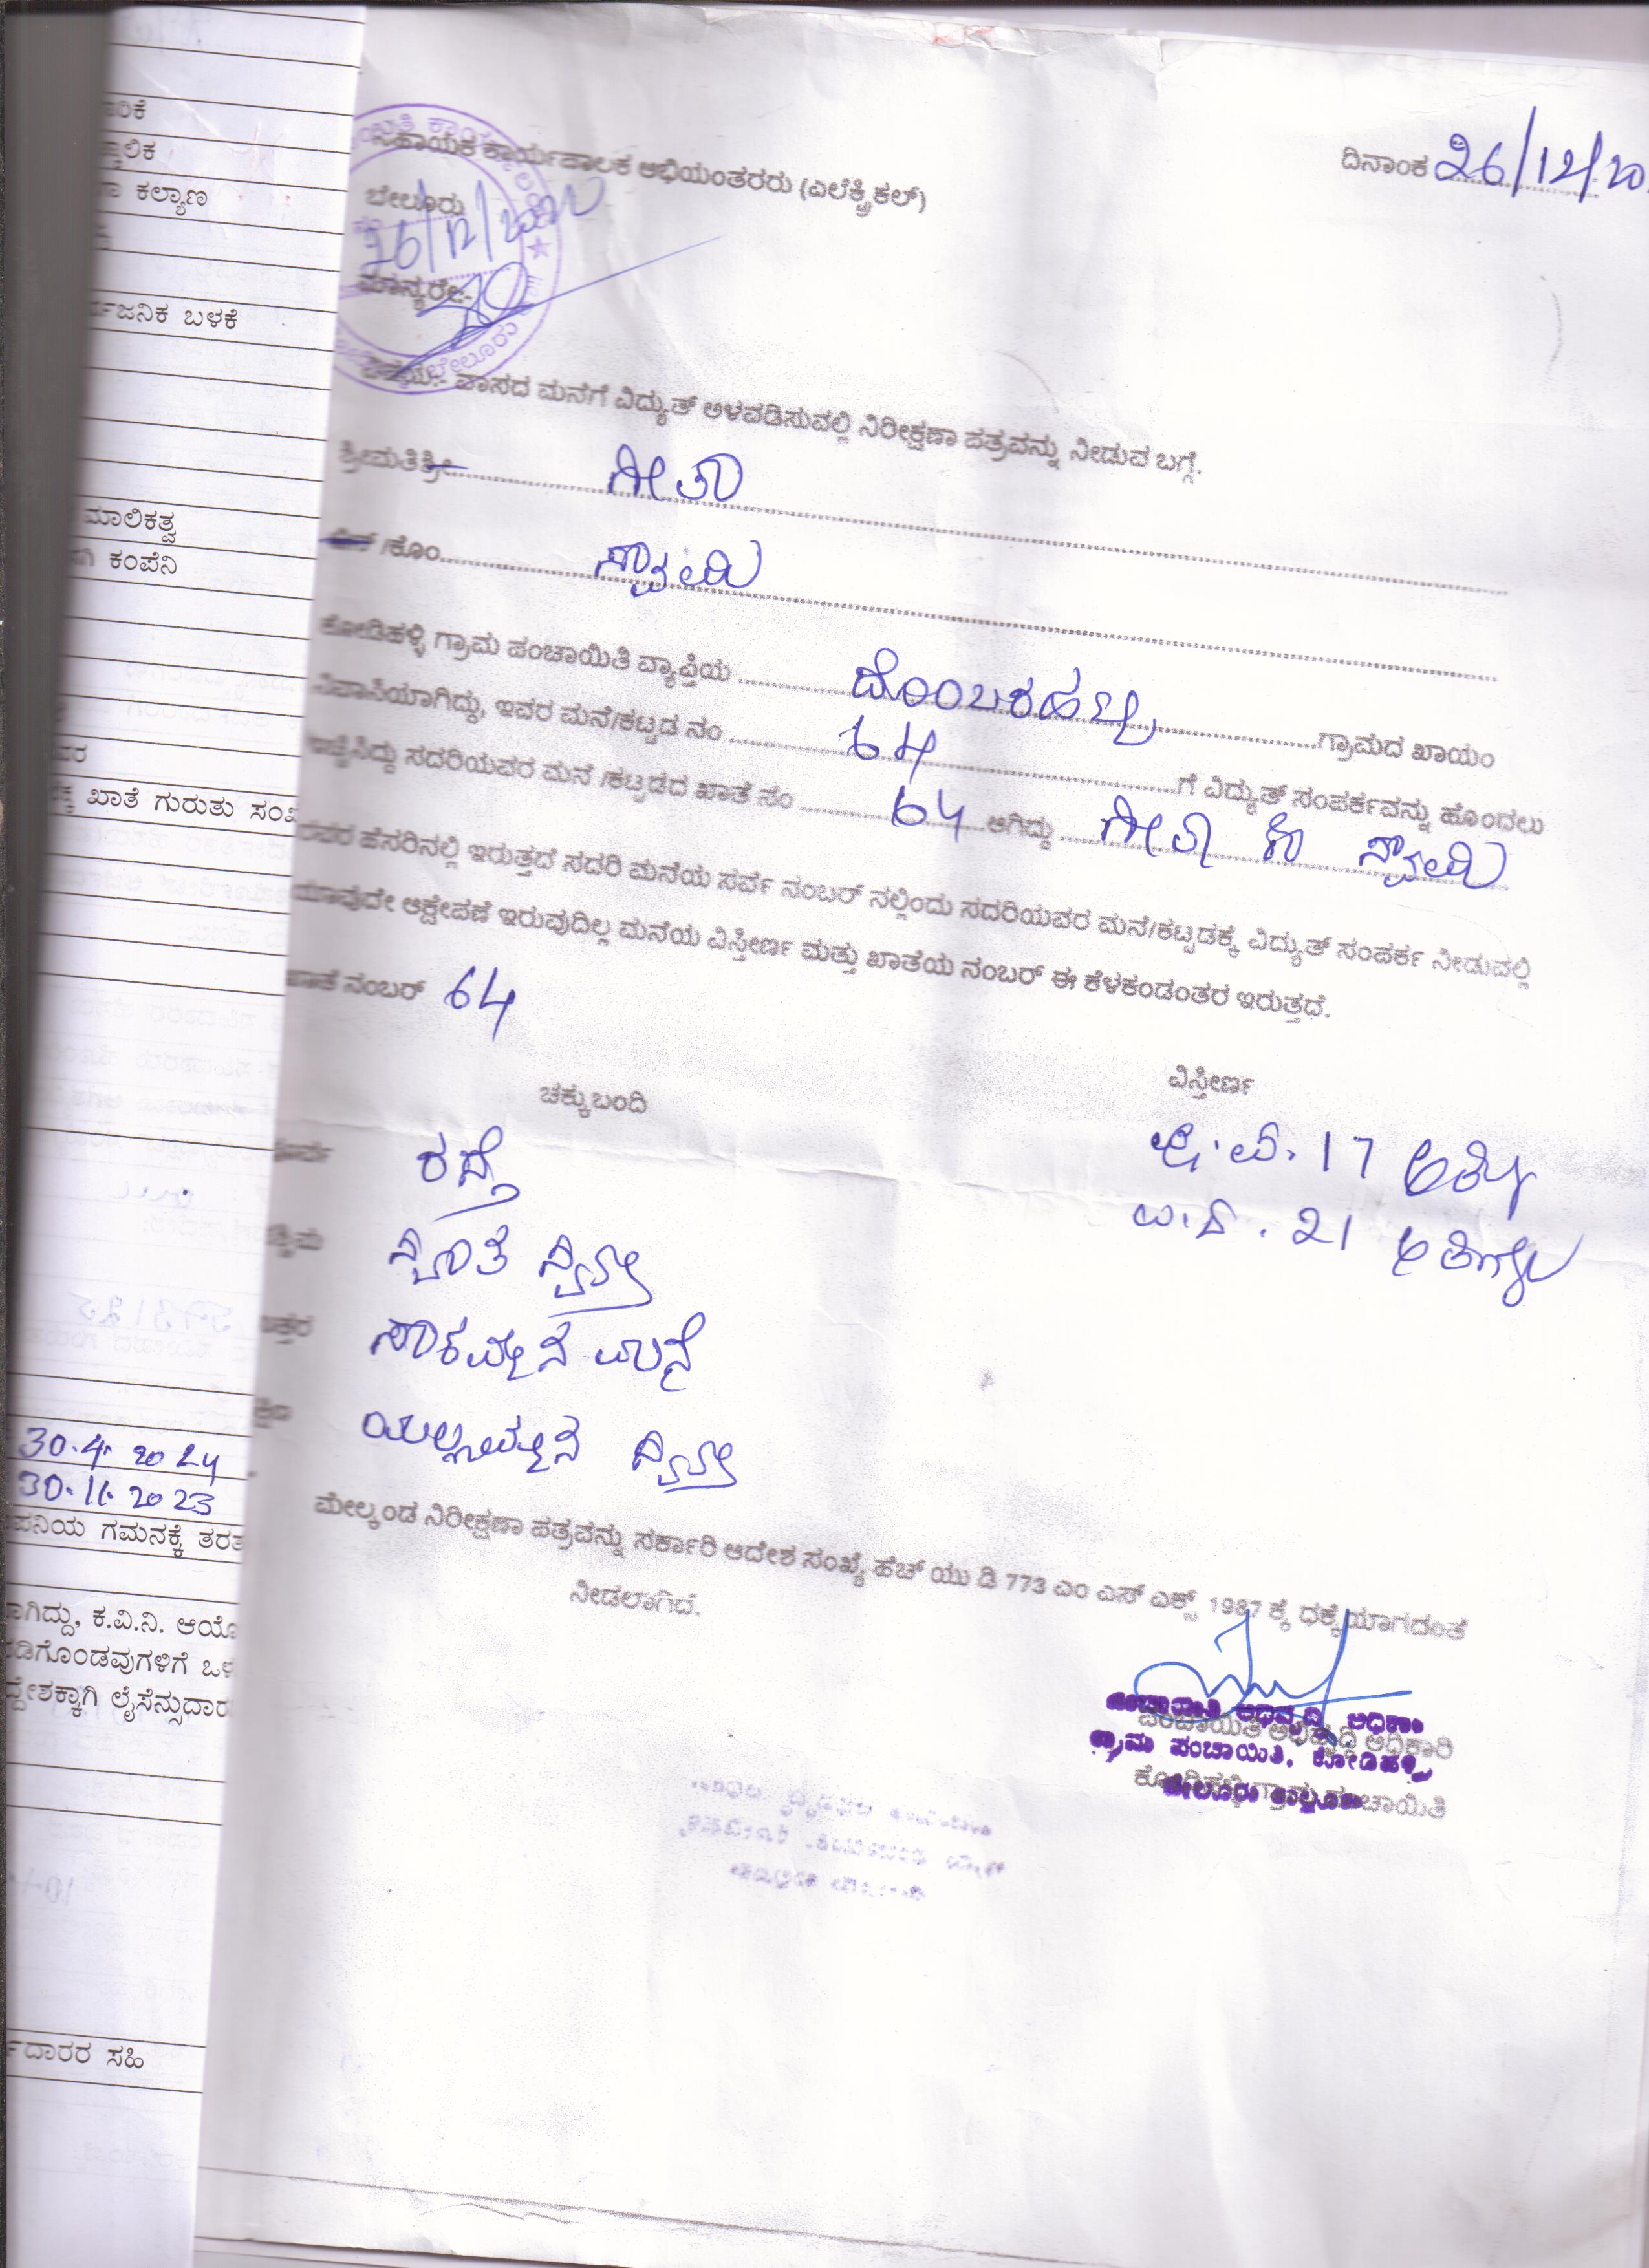 ದಿನಾಂಕ 26/12/20
ಸಹಾಯಕ ಕಾರ್ಯಪಾಲಕ ಅಭಿಯಂತರರು (ಎಲೆಕ್ಟ್ರಿಕಲ್)
ಬೇಲೂರು
26/12/20
ಮಾನ್ಯರೇ:-
ವಿಷಯ:- ವಾಸದ ಮನೆಗೆ ವಿದ್ಯುತ್ ಅಳವಡಿಸುವಲ್ಲಿ ನಿರೀಕ್ಷಣಾ ಪತ್ರವನ್ನು ನೀಡುವ ಬಗ್ಗೆ.
ಶ್ರೀಮತಿ/ಶ್ರೀ ಗೀತಾ
/ಕೋಂ ಸ್ವಾಮಿ
ಕೋಡಿಹಳ್ಳಿ ಗ್ರಾಮ ಪಂಚಾಯಿತಿ ವ್ಯಾಪ್ತಿಯ ದೊಂಬರಹಳ್ಳಿ ಗ್ರಾಮದ ಖಾಯಂ
ನಿವಾಸಿಯಾಗಿದ್ದು, ಇವರ ಮನೆ/ಕಟ್ಟಡ ನಂ 64 ಗೆ ವಿದ್ಯುತ್ ಸಂಪರ್ಕವನ್ನು ಹೊಂದಲು
ಇಚ್ಚಿಸಿದ್ದು ಸದರಿಯವರ ಮನೆ /ಕಟ್ಟಡದ ಖಾತೆ ನಂ 64 ಆಗಿದ್ದು ಗೀತಾ ಕೋ ಸ್ವಾಮಿ
ರವರ ಹೆಸರಿನಲ್ಲಿ ಇರುತ್ತದೆ ಸದರಿ ಮನೆಯ ಸರ್ವೆ ನಂಬರ್ ನಲ್ಲಿಂದು ಸದರಿಯವರ ಮನೆ/ಕಟ್ಟಡಕ್ಕೆ ವಿದ್ಯುತ್ ಸಂಪರ್ಕ ನೀಡುವಲ್ಲಿ
ಯಾವುದೇ ಆಕ್ಷೇಪಣೆ ಇರುವುದಿಲ್ಲ ಮನೆಯ ವಿಸ್ತೀರ್ಣ ಮತ್ತು ಖಾತೆಯ ನಂಬರ್ ಈ ಕೆಳಕಂಡಂತರ ಇರುತ್ತದೆ.
ಖಾತೆ ನಂಬರ್ 64
ಚಕ್ಕುಬಂದಿ
ವಿಸ್ತೀರ್ಣ
ಪೂರ್ವ ರಸ್ತೆ
ಪೂ.ಪ. 17 ಅಡಿ
ಪಶ್ಚಿಮ ಸ್ವಂತ ಸ್ವತ್ತು
ಉ.ದ. 21 ಅಡಿಗಳು
ಉತ್ತರ ಸಾಕಮ್ಮನ ಮನೆ
ಯಲ್ಲಮ್ಮನ ಸ್ವತ್ತು
ಮೇಲ್ಕಂಡ ನಿರೀಕ್ಷಣಾ ಪತ್ರವನ್ನು ಸರ್ಕಾರಿ ಆದೇಶ ಸಂಖ್ಯೆ ಹೆಚ್ ಯು ಡಿ 773 ಎಂ ಎಸ್ ಎಕ್ಸ್ 1987 ಕ್ಕೆ ಧಕ್ಕೆಯಾಗದಂತೆ
ನೀಡಲಾಗಿದೆ.
ಪಂಚಾಯಿತಿ ಅಭಿವೃದ್ಧಿ ಅಧಿಕಾರಿ
ಗ್ರಾಮ ಪಂಚಾಯಿತಿ, ಕೋಡಿಹಳ್ಳಿ
ಬೇಲೂರು ತಾಲ್ಲೂಕು
ಪಂಚಾಯಿತಿ ಅಭಿವೃದ್ಧಿ ಅಧಿಕಾರಿ
ಕೋಡಿಹಳ್ಳಿ ಗ್ರಾಮ ಪಂಚಾಯಿತಿ
ಕಲ್ಯಾಣ
ಜನಿಕ ಬಳಕೆ
ಮಾಲಿಕತ್ವ
ಕಂಪೆನಿ
ಖಾತೆ ಗುರುತು
30.4.2024
30.11.2023
ಗಮನಕ್ಕೆ
ಕ.ವಿ.ನಿ.
ಸಹಿ